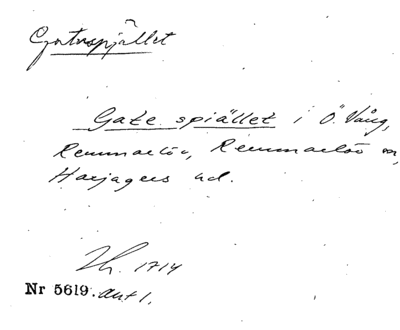 Gatuspjället
Gate spiället i Ö. Vång,
Remmarlöv, Remmarlöv sn,
Harjagers hd.
Lh. 1714
Nr 5619. akt 1.